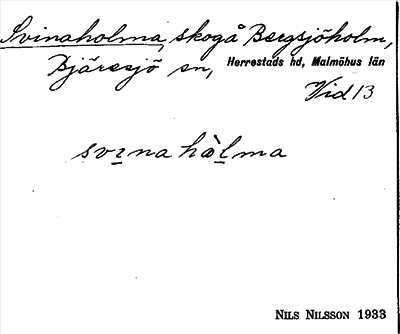 Svinaholma, skogå Bergsjöholm,
Bjäresjö sn, Herrestads hd, Malmöhus län
Vid 13
svɪna hὰlma
NILS NILSSON 1933